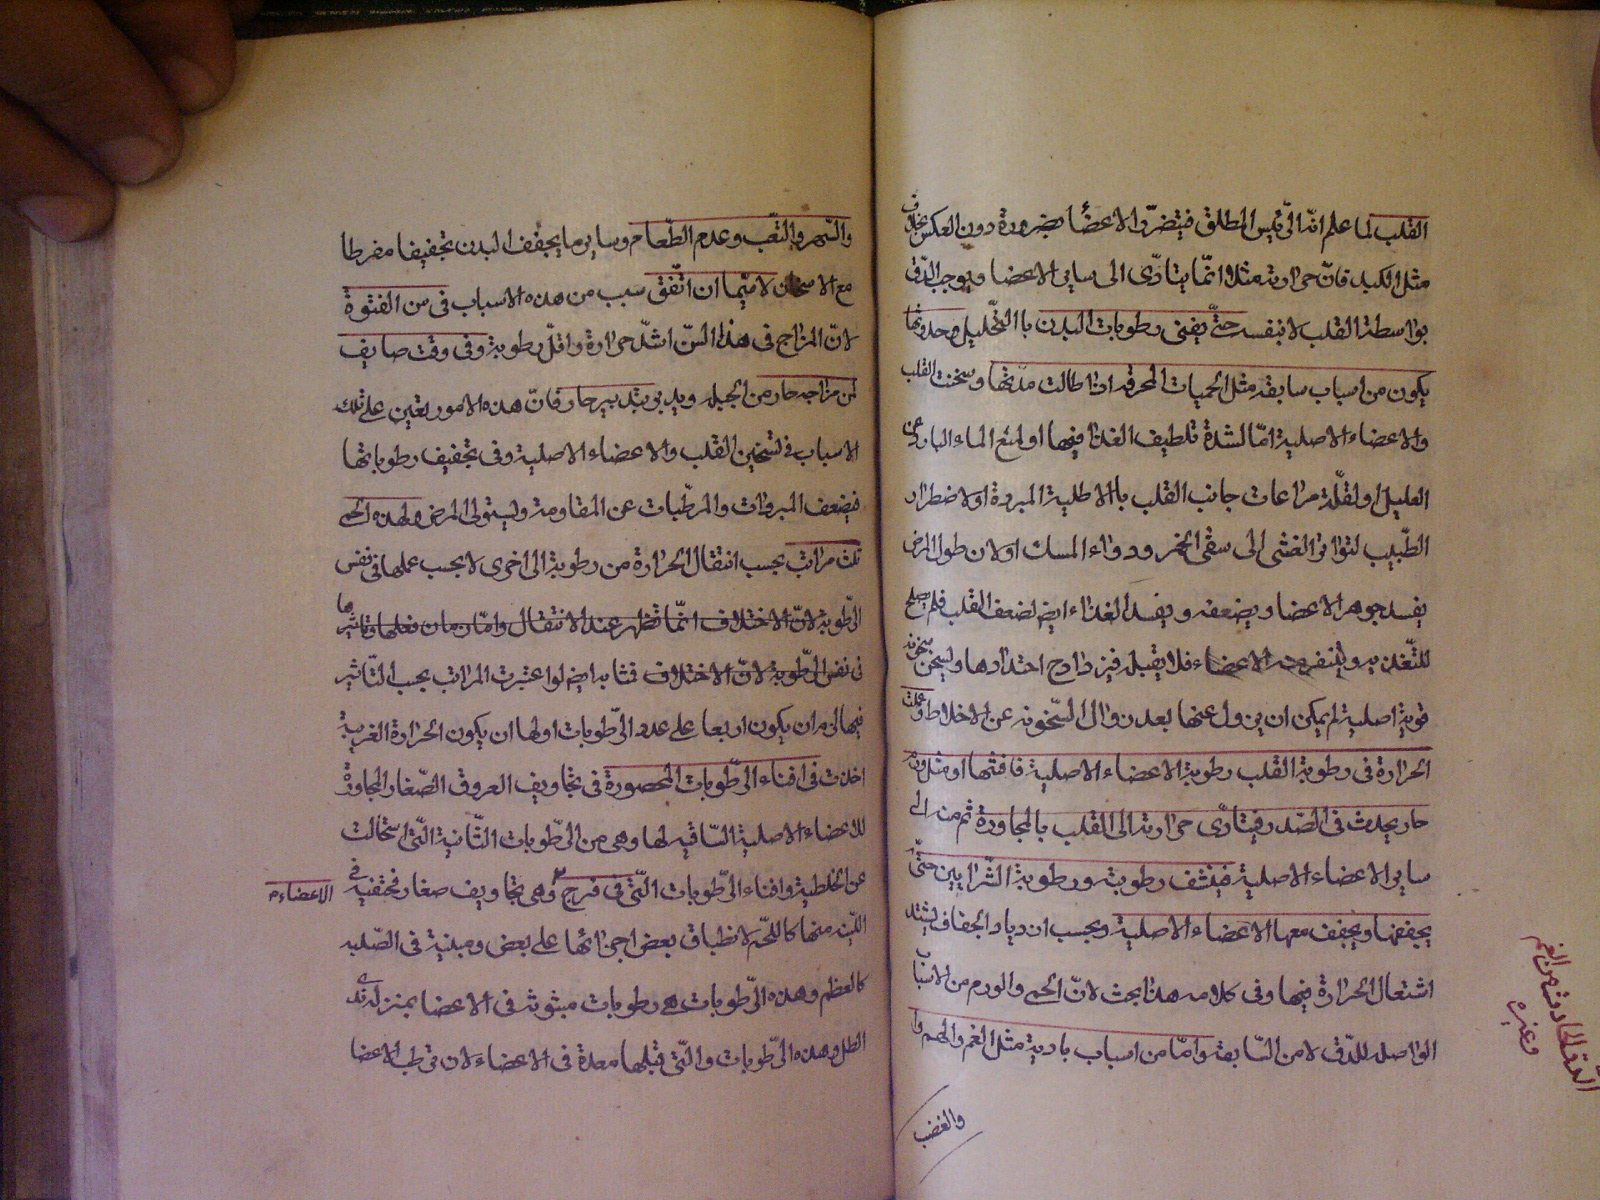 القلب لما علم انّه الرئيس المطلق فيتضرّر الاعضا بضرورة دون العكس بخلاف
مثل الكبد فانّ حرارته مثلا انّما يتادّى الى ساير الاعضا ويوجب الدّق
بواسطة القلب لا بنفسه حتّى يفنى رطوبات البدن باالتحليل وحدوثها
يكون من اسباب سابقه مثل الحميات المحرقه اذا طالت مدّتها وسخنت القلب
والاعضاء الاصلية امّا لشدة تلطيف الغذا فيها او لمنع الماء البارد عن
العليل او لقلّة مراعات جانب القلب باالاطلية المبردة او لاضطرار
الطّبيب لتواتر الغشى الى سقى الخمر ودواء المسك او لان طول المرض
يفسد جوهر الاعضا ويضعفه ويفسد الغذاء ايض لضعف القلب فلم يصلح
للتّغذيه ولينفر الاعضاء فلا يقبله فيزداد ح احتدادها وليسخن سخونه
قوية اصلية لم يمكن ان يزول عنها بعد زوال السّخونه عن الاخلاط او عملت
الحرارة فى رطوبة القلب رطوبة الاعضاء الاصلية فافنتها او مثل ورم
حار يحدث فى الصّدر فيتادّى حرارته الى القلب بالمجاورة ثم منه الى
ساير الاعضاء الاصلية فينشف رطوبته ورطوبة الشّرايين حتّى
يجففها ويجفف معها الاعضاء الاصلية وبحسب ازدياد الجفاف يشتد
اشتعال الحرارة فيها وفى كلامه هذا بحث لانّ الحمى والورم من الاسباب
الواصله للدّق لا من السّابقة وامّا من اسباب بادية مثل الغم والهم وا
والغضب
الدق الحادثة من الغم
وغيره
والسّهر والتعّب وعدم الطّعام وساير ما يجفّف البدن تجفيفا مفرطا
مع الاسخان لاسيّما ان اتّفق سبب من هذه الاسباب فى سن الفتوة
لانّ المزاج فى هذا السنّ اشدّ حرارة واقلّ رطوبة وفى وقت صايف
لمن مزاجه حار من الجبلة ويدبر بتدبير حار فانّ هذه الامور يعين على تلك
الاسباب فى تسخين القلب والاعضاء الاصلية وفى تجفيف رطوباتها
فيضعف المبردات والمرطّبات عن المقاومة وليستولى المرض ولهذه الحمى
ثلث مراتب بحسب انتقال الحرارة من رطوبة الى اخرى لا بحسب عملها فى نفس
الرّطوبة لانّ الاختلاف انّما تظهر عند الانتقال وامّا زمان فعلها وتاثيرها
فى نفس الرّطوبة لانّ الاختلاف فتشابه ايض لو اعتبرت المراتب بحسب التّاثير
فيها لزم ان يكون اربعا على عدد الرّطوبات اولها ان يكون الحرارة الغريبة
اخذت فى افناء الرّطوبات المحصورة فى تجاويف العروق الصّغار المجاورة
للاعضاء الاصلية السّاقيه لها وهى من الرّطوبات الثّانية التّى استحالت
عن الخلطية وافناء الرّطوبات الّتى فى فرج وهى تجاويف صغار مختفية فى
الاعضاء م
الليّنه منها كاللحّم لانطباق بعض اجزائها على بعض ومبنية فى الصّلبه
كالعظم وهذه الرّطوبات هى رطوبات مبثوثه فى الاعضا بمنزله ندى
الطل وهذه الرّطوبات والّتى قبلها معدة فى الاعضاء لان ترطب الاعضا